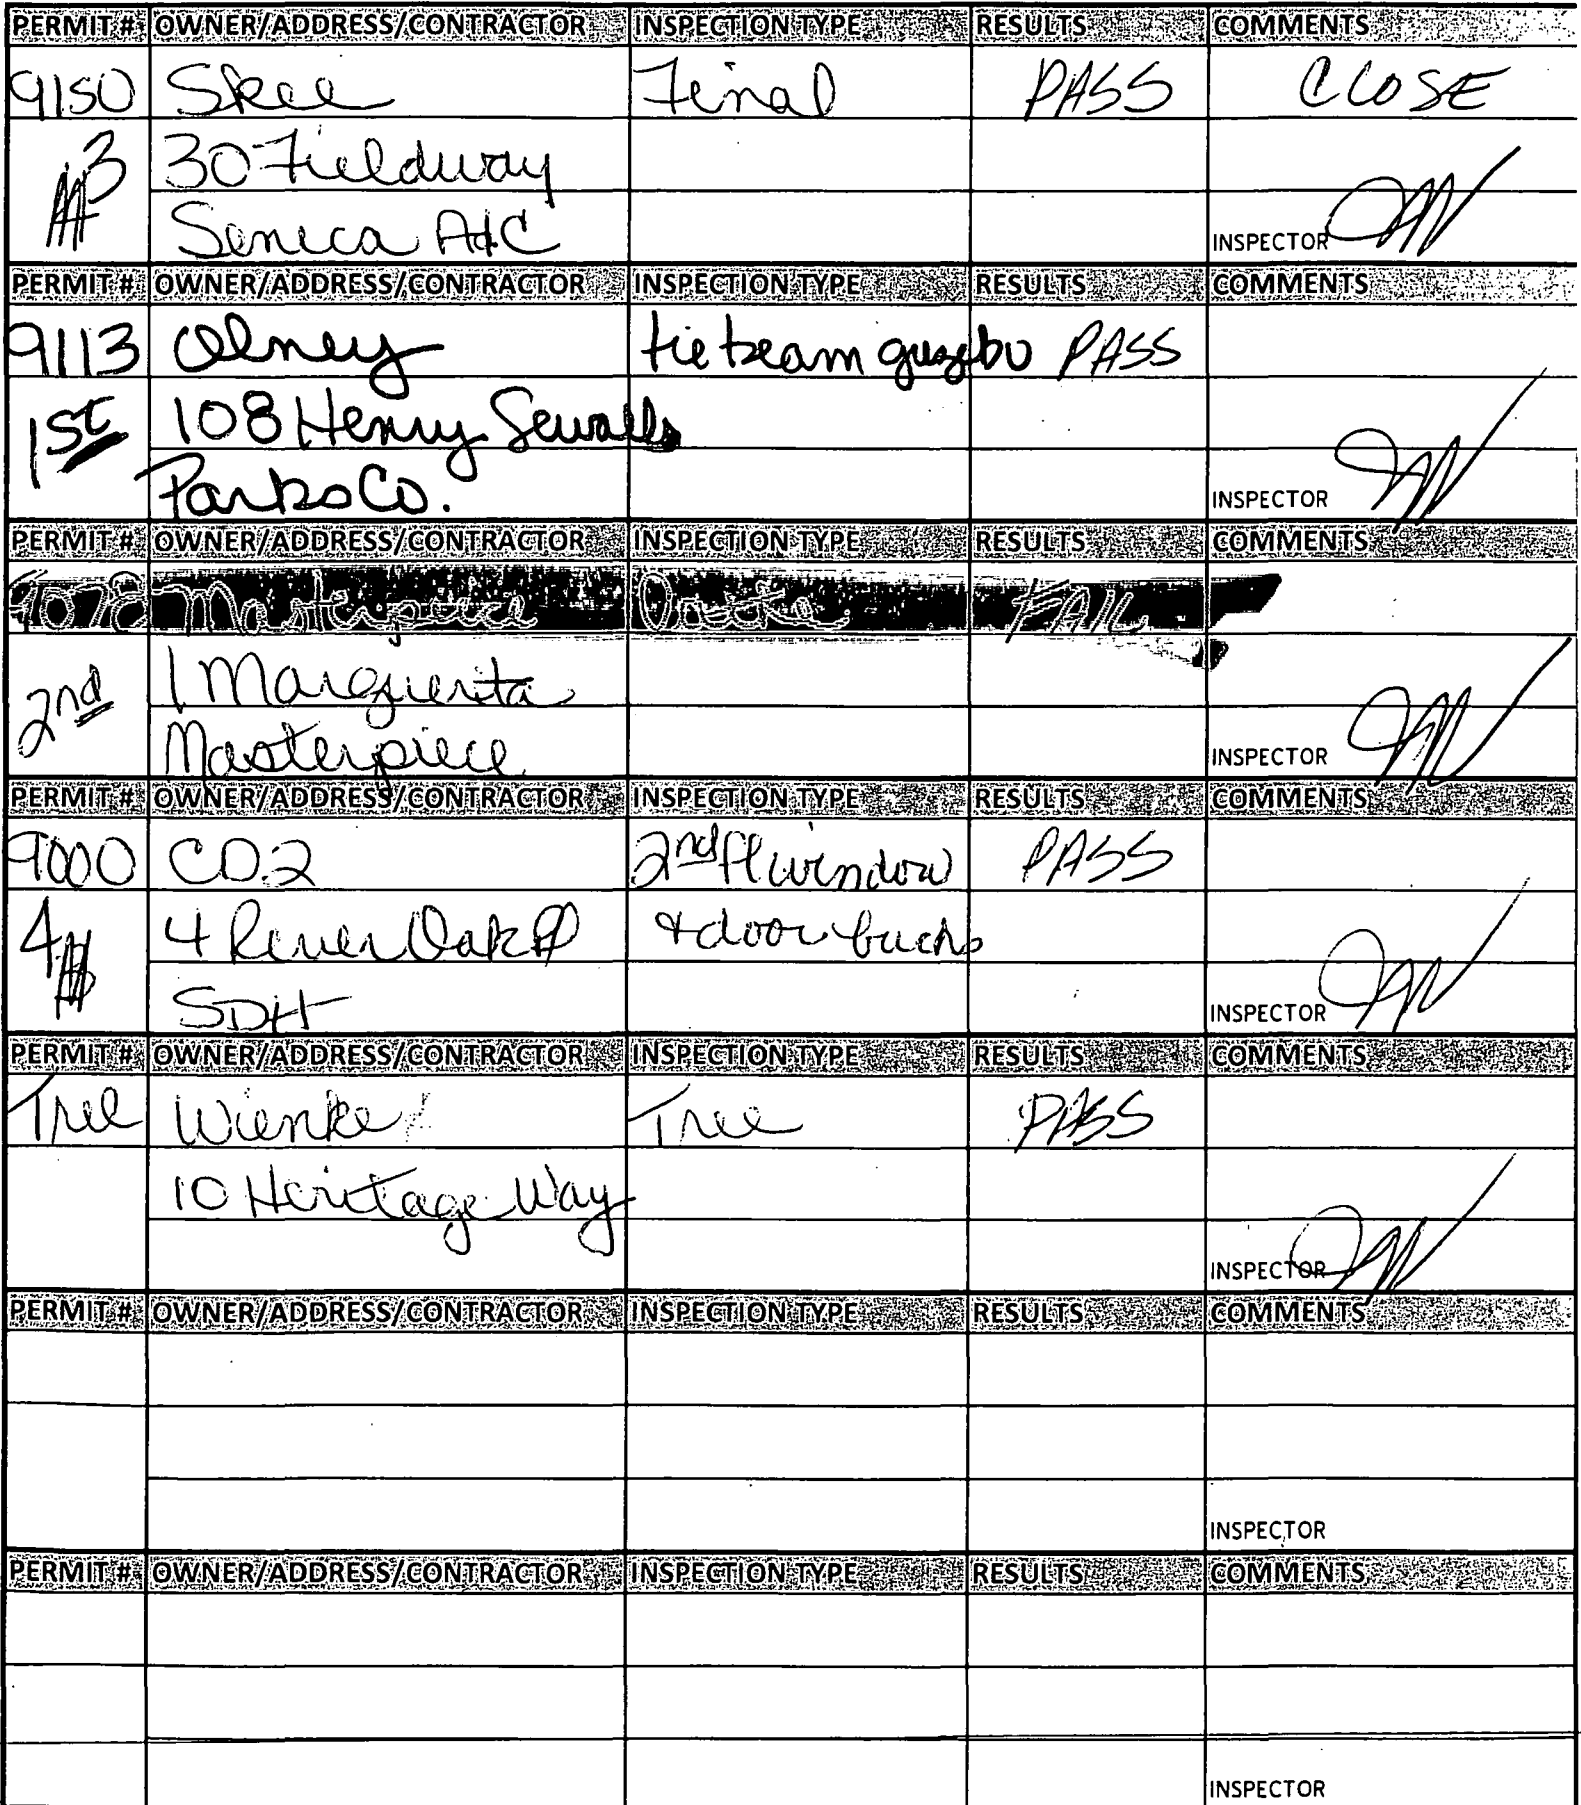 PERMIT # OWNER/ADDRESS/CONTRACTOR INSPECTION TYPE RESULTS COMMENTS
9150 Final PASS CLOSE
3 30 Fieldway
Seneca A/C INSPECTOR
PERMIT # OWNER/ADDRESS/CONTRACTOR INSPECTION TYPE RESULTS COMMENTS
9113 Olney tie beam PASS
1st 108 Henry Sewalls
Parks Co. INSPECTOR
PERMIT # OWNER/ADDRESS/CONTRACTOR INSPECTION TYPE RESULTS COMMENTS
9078 Masterpiece FAIL
2nd 1 Marguerita
Masterpiece INSPECTOR
PERMIT # OWNER/ADDRESS/CONTRACTOR INSPECTION TYPE RESULTS COMMENTS
9000 CD.2 2nd fl window PASS
4 4 River Oak & door bucks
SDH INSPECTOR
PERMIT # OWNER/ADDRESS/CONTRACTOR INSPECTION TYPE RESULTS COMMENTS
Tree Wienke Tree PASS
10 Heritage Way
INSPECTOR
PERMIT # OWNER/ADDRESS/CONTRACTOR INSPECTION TYPE RESULTS COMMENTS
INSPECTOR
PERMIT # OWNER/ADDRESS/CONTRACTOR INSPECTION TYPE RESULTS COMMENTS
INSPECTOR